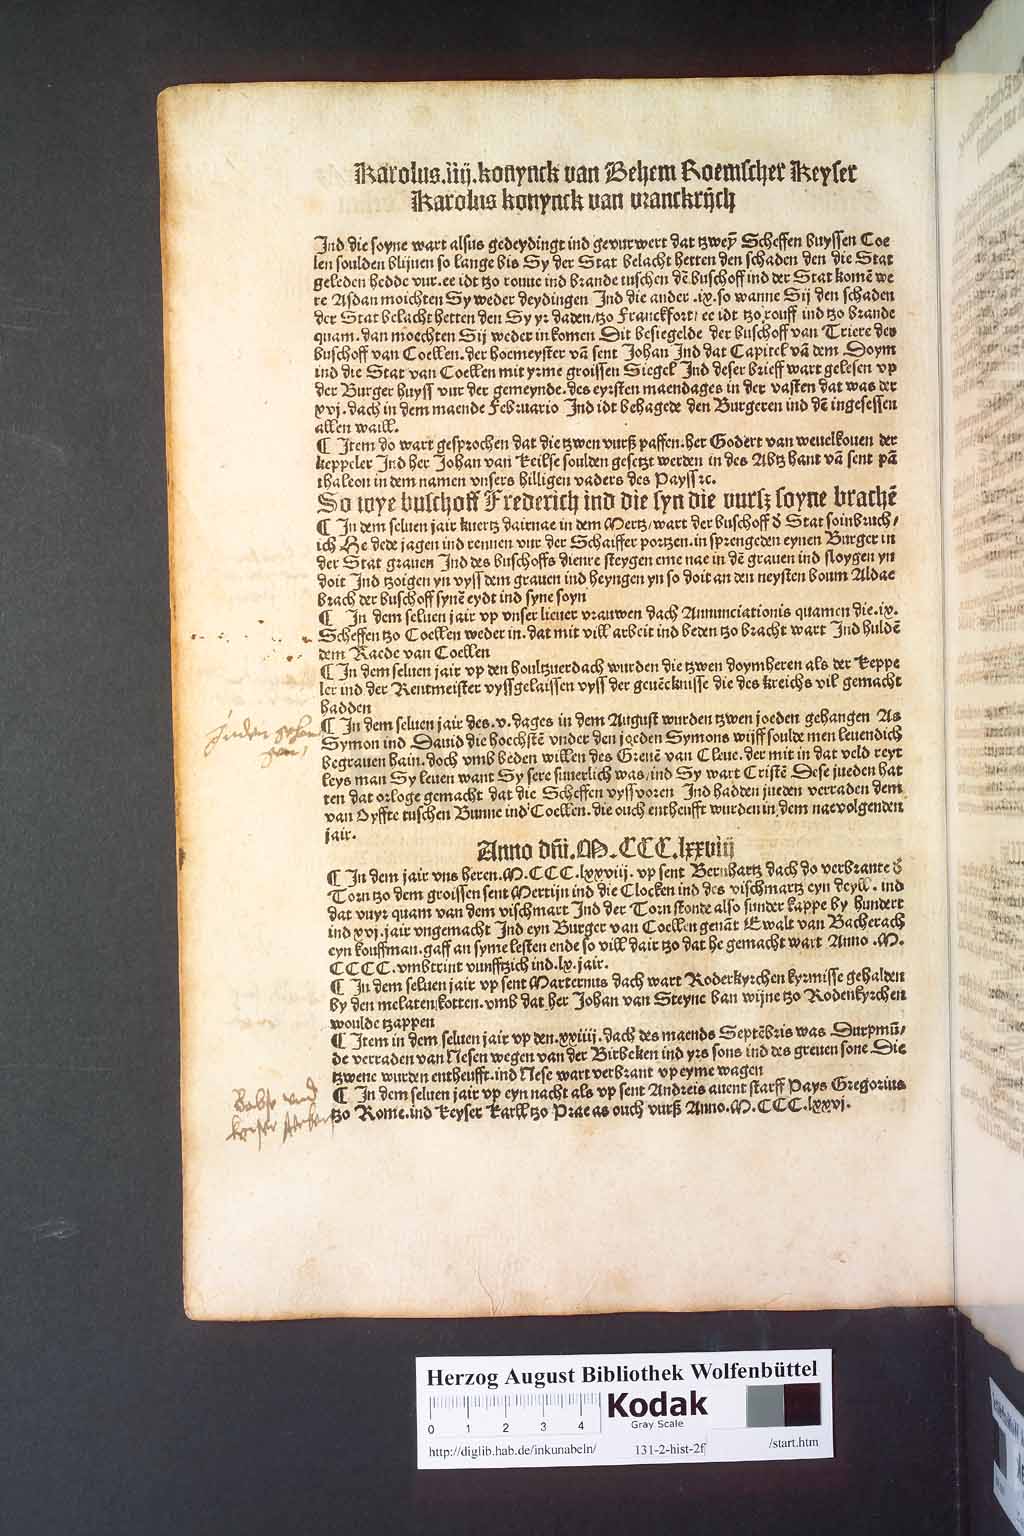 Karolus.iiij.konynck van Behem Roemscher Keyser
Karolus konynck van vranckrijch
Ind die soyne wart alsus gedeydingt ind gevurwert dat tzweÿ Scheffen buyssen Coe
len soulden blijuen so lange bis Sy der Stat belacht hetten den schaden den die Stat
geleden hedde vur.ee idt tzo rouue ind brande tuschen dē buschoff ind der Stat komē we
re Asdan moichten Sy weder deydingen Ind die ander .ix.so wanne Sij den schaden
der Stat belacht hetten den Sy yr daden/tzo Franckfort/ ee idt tzo rouff ind tzo brande
quam.dan moechten Sij weder in komen Dit besiegelde der buschoff van Triere des
buschoff van Coellen.der hoemeyster vā sent Johan Ind dat Capitel vā dem Doym
ind die Stat van Coellen mit yrme groissen Siegel Ind deser brieff wart gelesen vp
der Burger huyss vur der gemeynde.des eyrsten maendages in der vasten dat was der
xvj.dach in dem maende Februario Ind idt behagede den Burgeren ind dē ingesessen
allen waill.
¶ Item do wart gesprochen dat die tzwen vurß paffen.her Godert van weuelkouen der
keppeler Ind her Johan van Keilse soulden gesetzt werden in des Abtz hant vā sent pā
thaleon in dem namen vnsers hilligen vaders des Payss ꝛc.
So wye buschoff Frederich ind die syn die vurß soyne brachē
¶ In dem seluen jair kuertz dairnae in dem Mertz/wart der buschoff đ Stat soinbruch/
ich He dede jagen ind rennen vur der Schaiffer portzen.in sprengeden eynen Burger in
der Stat grauen Ind des buschoffs dienre steygen eme nae in dē grauen ind sloygen yn
doit Ind tzoigen yn vyss dem grauen ind heyngen yn so doit an den neysten boum Aldae
brach der buschoff synē eydt ind syne soyn
¶ In dem seluen jair vp vnser lieuer vrauwen dach Annunciationis quamen die.ix.
Scheffen tzo Coellen weder in.dat mit vill arbeit ind beden tzo bracht wart Ind huldē
dem Raede van Coellen
¶ In dem seluen jair vp den houltzuerdach wurden die tzwen doymheren als der keppe
ler ind der Rentmeister vyssgelaissen vyss der geuēcknisse die des kreichs vil gemacht
hadden
¶ In dem seluen jair des.v.dages in dem August wurden tzwen joeden gehangen As
Symon ind Dauid die hoechstē vnder den joeden Symons wijff soulde men leuendich
begrauen hain.doch vmb beden willen des Greuē van Cleue.der mit in dat veld reyt
leys man Sy leuen want Sy sere suuerlich was/ind Sy wart Cristē Dese jueden hat
ten dat orloge gemacht dat die Scheffen vyss voren Ind hadden jueden verraden dem
van Oyffte tuschen Bunne ind Coellen.die ouch entheufft wurden in dem naevolgenden
jair.
Anno dñi.M.CCC.lxxviij
¶ In dem jair vns heren.M.CCC.lxxviij. vp sent Bernhartz dach do verbrante đ
Torn tzo dem groissen sent Mertijn ind die Clocken ind des vischmartz eyn deyll. ind
dat vuyr quam van dem vischmart Ind der Torn stonde also sunder kappe by hundert
ind xvj.jair vngemacht Ind eyn Burger van Coellen genāt Ewalt van Bacherach
eyn kouffman.gaff an syme lesten ende so vill dair tzo dat he gemacht wart Anno .M.
CCCC.vmbtrint vunfftzich ind.lx.jair.
¶ In dem seluen jair vp sent Maternus dach wart Roderkyrchen kyrmisse gehalden
by den melaten kotten.vmb dat her Johan van Steyne ban wijne tzo Rodenkyrchen
woulde tzappen
¶ Item in dem seluen jair vp den.xxiiij.dach des maends Septēbris was Durpmū/
de verraden van Nesen wegen van der Birbeken ind yrs sons ind des greuen sone Die
tzwene wurden entheufft.ind Nese wart verbrant vp eyme wagen
¶ In dem seluen jair vp eyn nacht als vp sent Andreis auent starff Pays Gregorius
tzo Rome.ind keyser Karll tzo Prae as ouch vurß Anno.M.CCC.lxxvj.
Juden gehan
gen
Babst und
keiser sterben
Herzog August Bibliothek Wolfenbüttel
0 1 2 3 4
Kodak
Gray Scale
http://diglib.hab.de/inkunabeln/ 131-2-hist-2f /start.htm